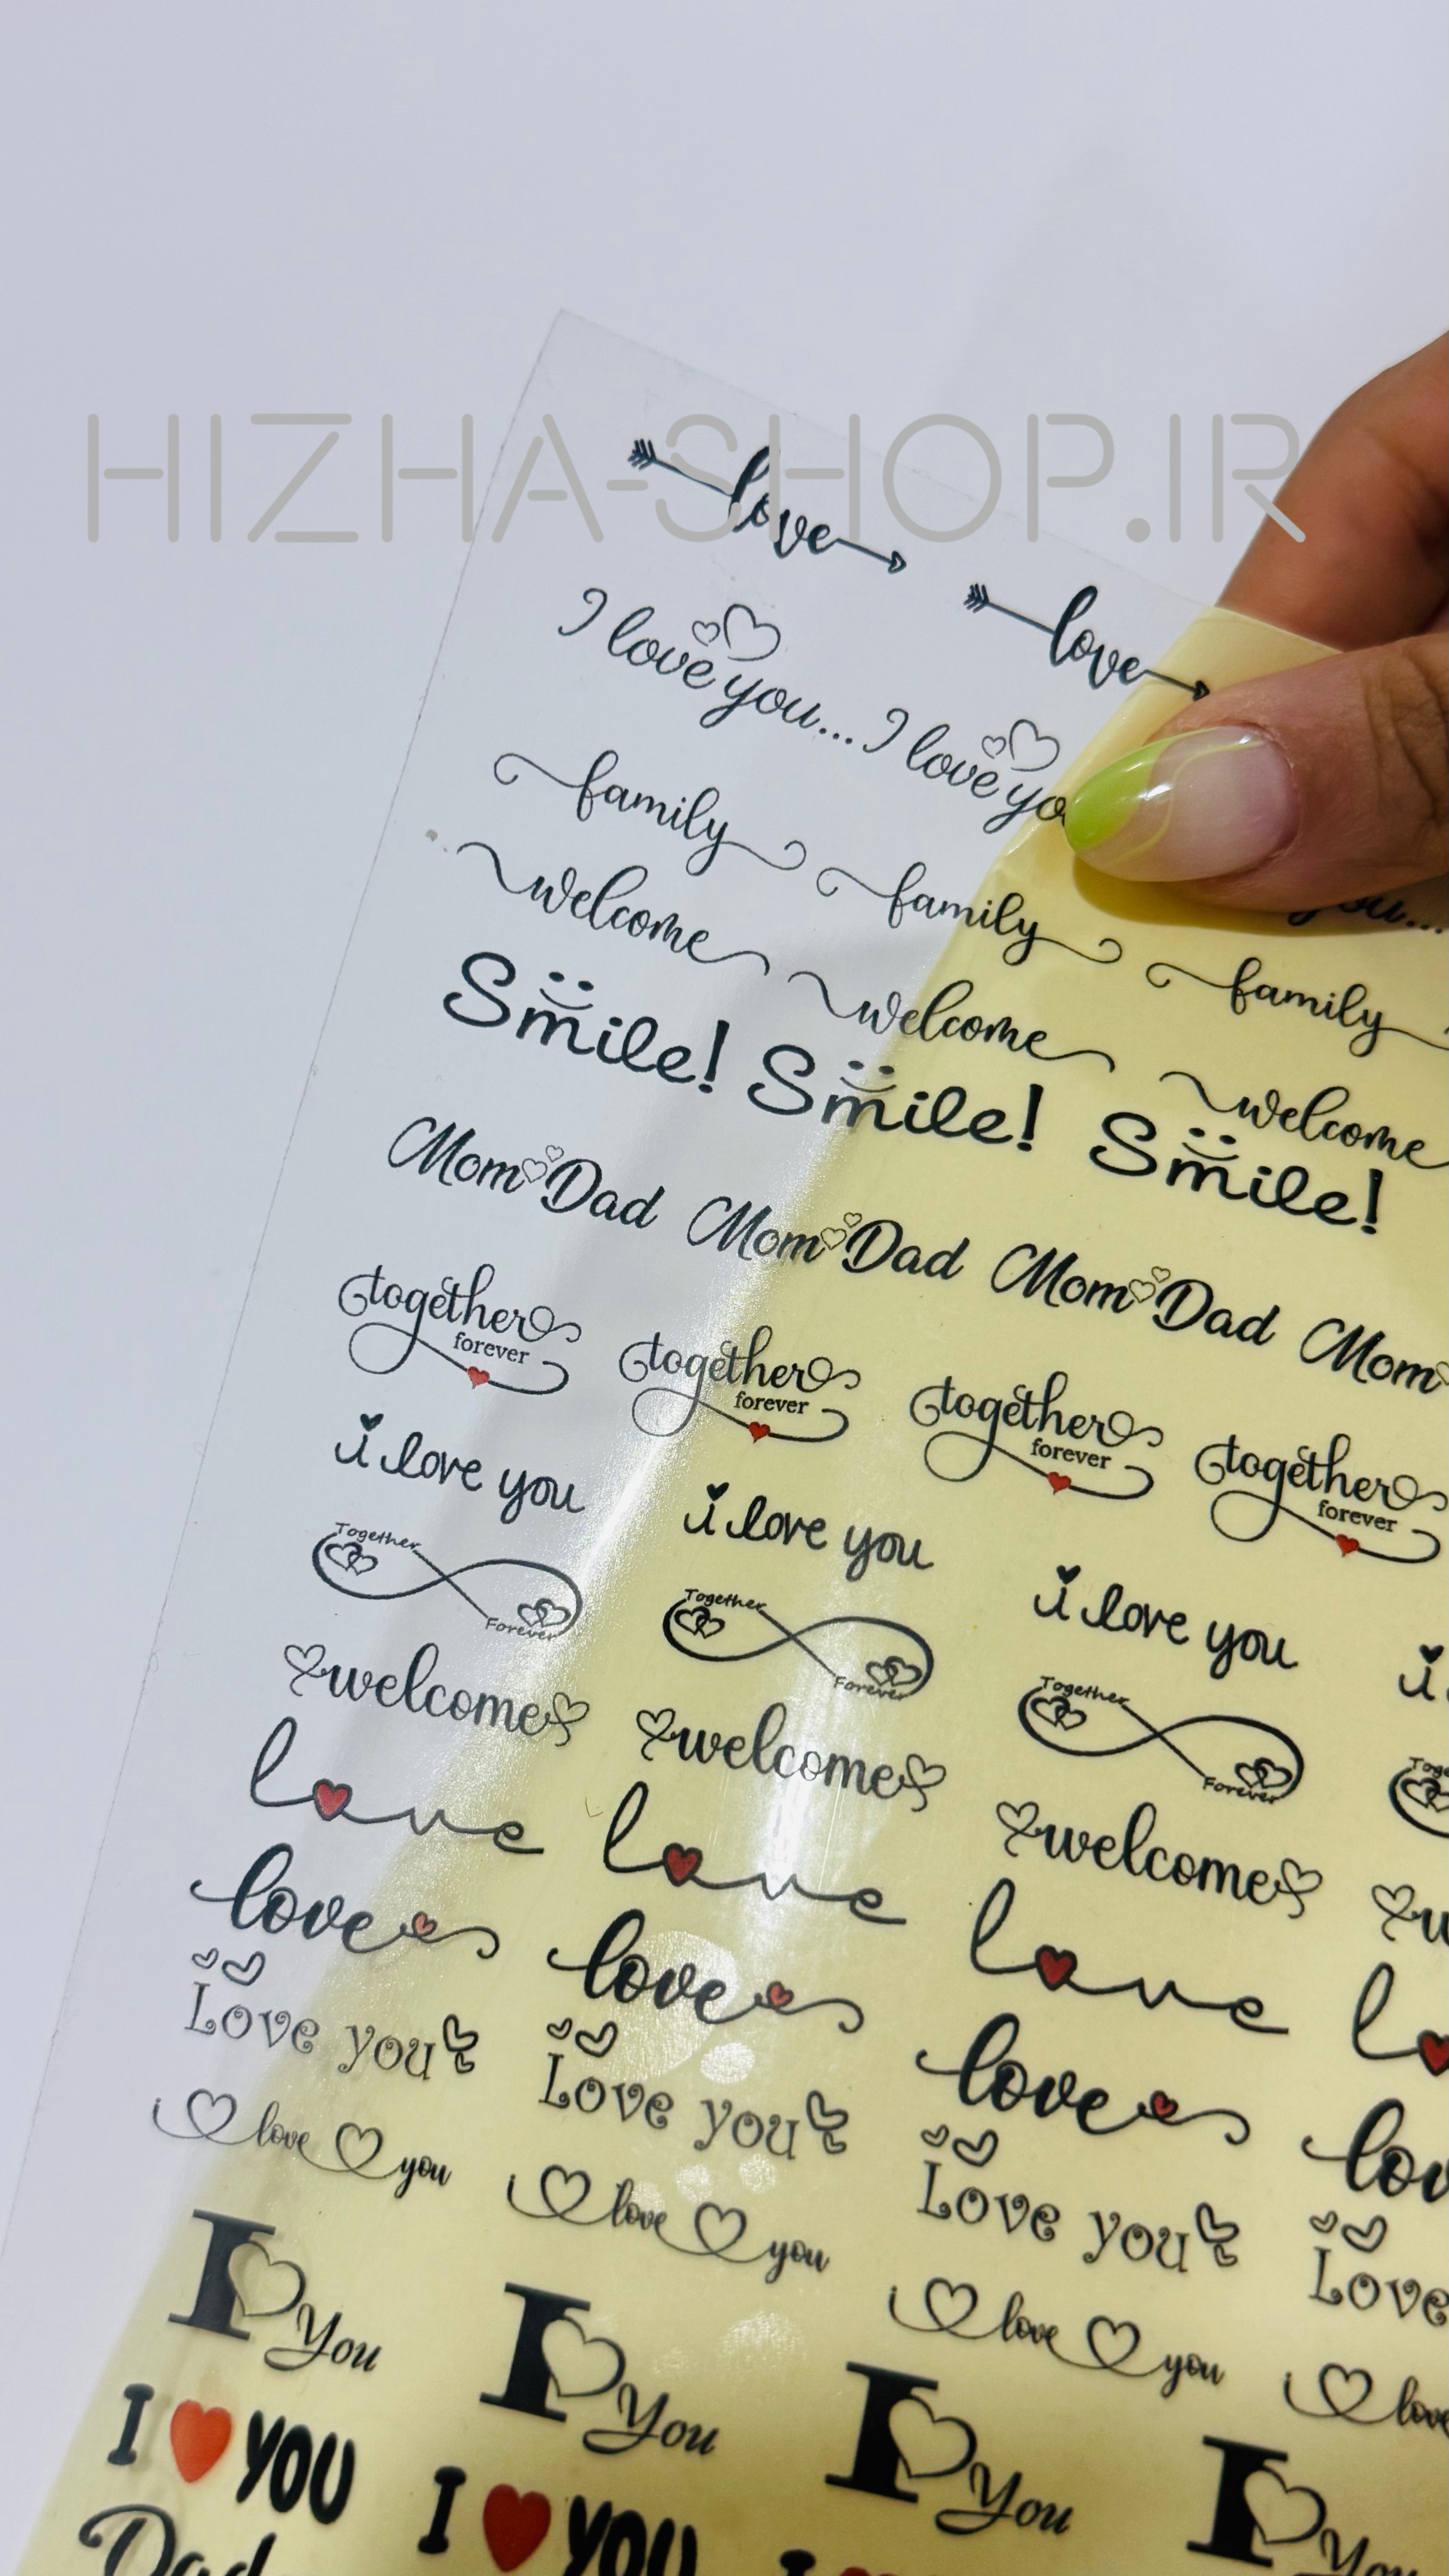 HIZHA-SHOP.IR
love love
I love you... I love yo
you...
family family family
welcome welcome welcome
Smile! Smile! Smile!
Mom Dad Mom Dad Mom Dad Mom
together together together together
forever forever forever forever
i love you i love you i love you i
Together Together Together Toge
Forever Forever Forever
welcome welcome welcome w
love love love lo
love love love lov
Love you Love you Love you Love
love you love you love you love
I You I You I You I You
I YOU I YOU I
Dad